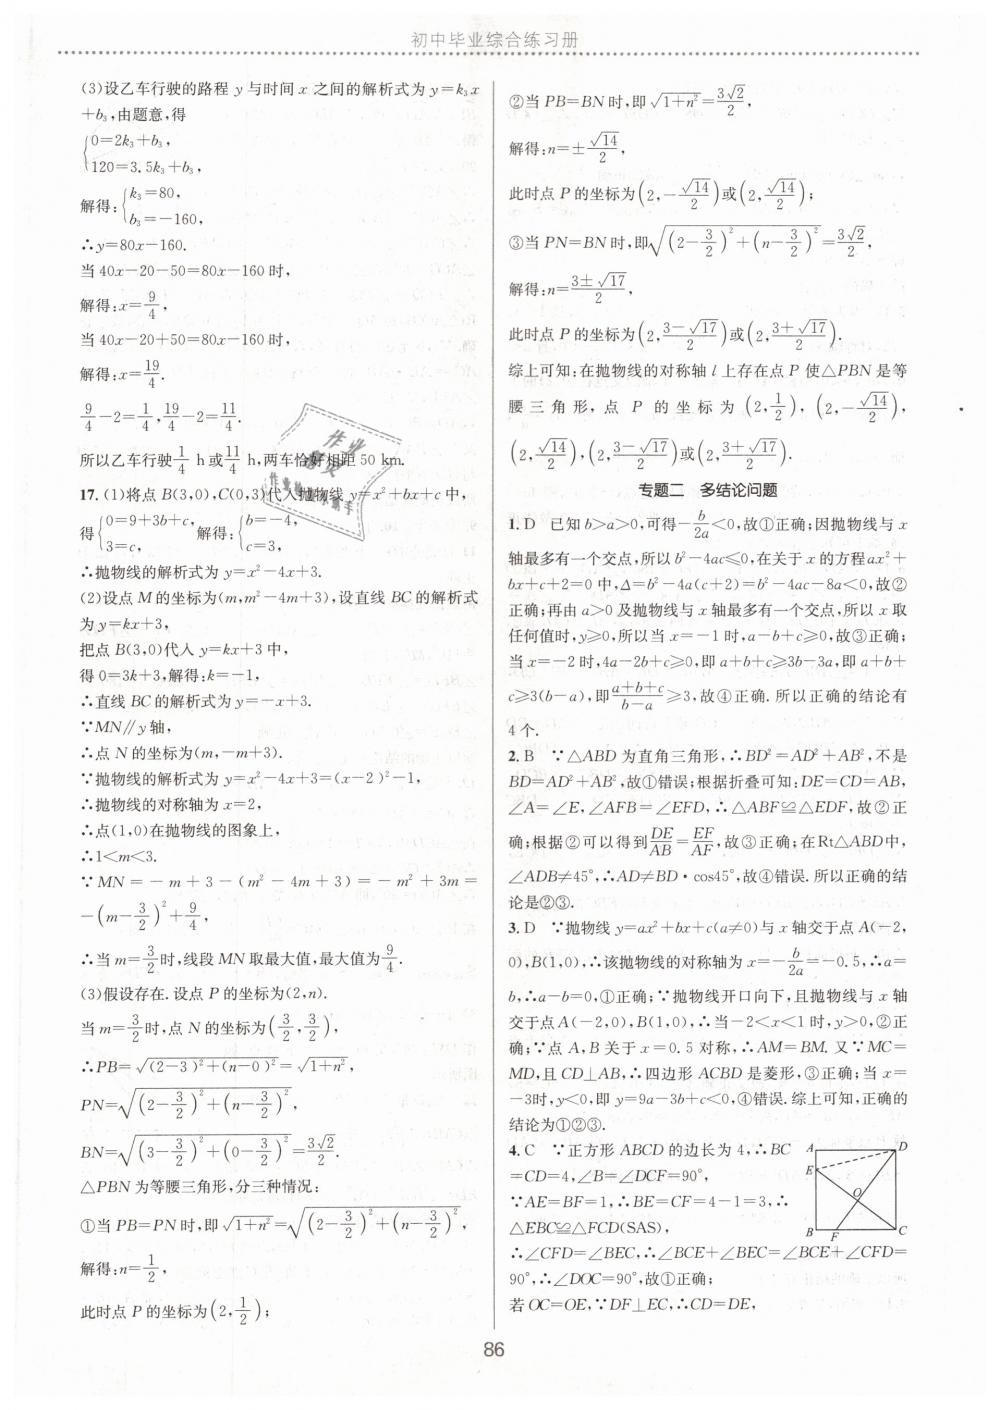 初中毕业综合练习册
(3)设乙车行驶的路程 y 与时间 x 之间的解析式为 y=k₃x
+b₃,由题意,得
{0=2k₃+b₃,
120=3.5k₃+b₃,
解得:{k₃=80,
b₃=-160,
∴y=80x-160.
当 40x-20-50=80x-160 时,
解得:x=9/4,
当 40x-20+50=80x-160 时,
解得:x=19/4.
9/4-2=1/4,19/4-2=11/4.
所以乙车行驶1/4 h或11/4 h,两车恰好相距 50 km.
17. (1)将点 B(3,0),C(0,3)代入抛物线 y=x²+bx+c 中,
得{0=9+3b+c,
3=c, 解得:{b=-4,
c=3,
∴抛物线的解析式为 y=x²-4x+3.
(2)设点 M 的坐标为(m,m²-4m+3),设直线 BC 的解析式
为 y=kx+3,
把点 B(3,0)代入 y=kx+3 中,
得 0=3k+3,解得:k=-1,
∴直线 BC 的解析式为 y=-x+3.
∵MN∥y 轴,
∴点 N 的坐标为(m,-m+3).
∵抛物线的解析式为 y=x²-4x+3=(x-2)²-1,
∴抛物线的对称轴为 x=2,
∴点(1,0)在抛物线的图象上,
∴1<m<3.
∵MN=-m+3-(m²-4m+3)=-m²+3m=
-(m-3/2)²+9/4,
∴当 m=3/2时,线段 MN 取最大值,最大值为9/4.
(3)假设存在. 设点 P 的坐标为(2,n).
当 m=3/2时,点 N 的坐标为(3/2,3/2),
∴PB=√((2-3)²+(n-0)²)=√(1+n²),
PN=√((2-3/2)²+(n-3/2)²),
BN=√((3-3/2)²+(0-3/2)²)=3√2/2.
△PBN 为等腰三角形,分三种情况:
①当 PB=PN 时,即√(1+n²)=√((2-3/2)²+(n-3/2)²),
解得:n=1/2,
此时点 P 的坐标为(2,1/2);
②当 PB=BN 时,即√(1+n²)=3√2/2,
解得:n=±√14/2,
此时点 P 的坐标为(2,-√14/2)或(2,√14/2);
③当 PN=BN 时,即√((2-3/2)²+(n-3/2)²)=3√2/2,
解得:n=(3±√17)/2,
此时点 P 的坐标为(2,(3-√17)/2)或(2,(3+√17)/2).
综上可知:在抛物线的对称轴 l 上存在点 P 使△PBN 是等
腰三角形,点 P 的坐标为(2,1/2),(2,-√14/2),
(2,√14/2),(2,(3-√17)/2)或(2,(3+√17)/2).
专题二 多结论问题
1. D 已知 b>a>0,可得-b/2a<0,故①正确;因抛物线与 x
轴最多有一个交点,所以 b²-4ac≤0,在关于 x 的方程 ax²+
bx+c+2=0 中,Δ=b²-4a(c+2)=b²-4ac-8a<0,故②
正确;再由 a>0 及抛物线与 x 轴最多有一个交点,所以 x 取
任何值时,y≥0,所以当 x=-1 时,a-b+c≥0,故③正确;
当 x=-2 时,4a-2b+c≥0,即 a+b+c≥3b-3a,即 a+b+
c≥3(b-a),即(a+b+c)/(b-a)≥3,故④正确. 所以正确的结论有
4 个.
2. B ∵△ABD 为直角三角形,∴BD²=AD²+AB²,不是
BD=AD²+AB²,故①错误;根据折叠可知:DE=CD=AB,
∠A=∠E,∠AFB=∠EFD,∴△ABF≌△EDF,故②正
确;根据②可以得到DE/AB=EF/AF,故③正确;在Rt△ABD中,
∠ADB≠45°,∴AD≠BD·cos45°,故④错误. 所以正确的结
论是②③.
3. D ∵抛物线 y=ax²+bx+c(a≠0)与 x 轴交于点 A(-2,
0),B(1,0),∴该抛物线的对称轴为 x=-b/2a=-0.5,∴a=
b,∴a-b=0,①正确;∵抛物线开口向下,且抛物线与 x 轴
交于点 A(-2,0),B(1,0),∴当-2<x<1 时,y>0,②正
确;∵点 A,B 关于 x=0.5 对称,∴AM=BM. 又∵MC=
MD,且 CD⊥AB,∴四边形 ACBD 是菱形,③正确;当 x=
-3时,y<0,即 y=9a-3b+c<0,④错误. 综上可知,正确的
结论为①②③.
4. C ∵正方形 ABCD 的边长为 4,∴BC
=CD=4,∠B=∠DCF=90°,
∵AE=BF=1,∴BE=CF=4-1=3,∴
△EBC≌△FCD(SAS),
A D
E
O
B F C
∴∠CFD=∠BEC,∴∠BCE+∠BEC=∠BCE+∠CFD=
90°,∴∠DOC=90°,故①正确;
若 OC=OE,∵DF⊥EC,∴CD=DE,
86